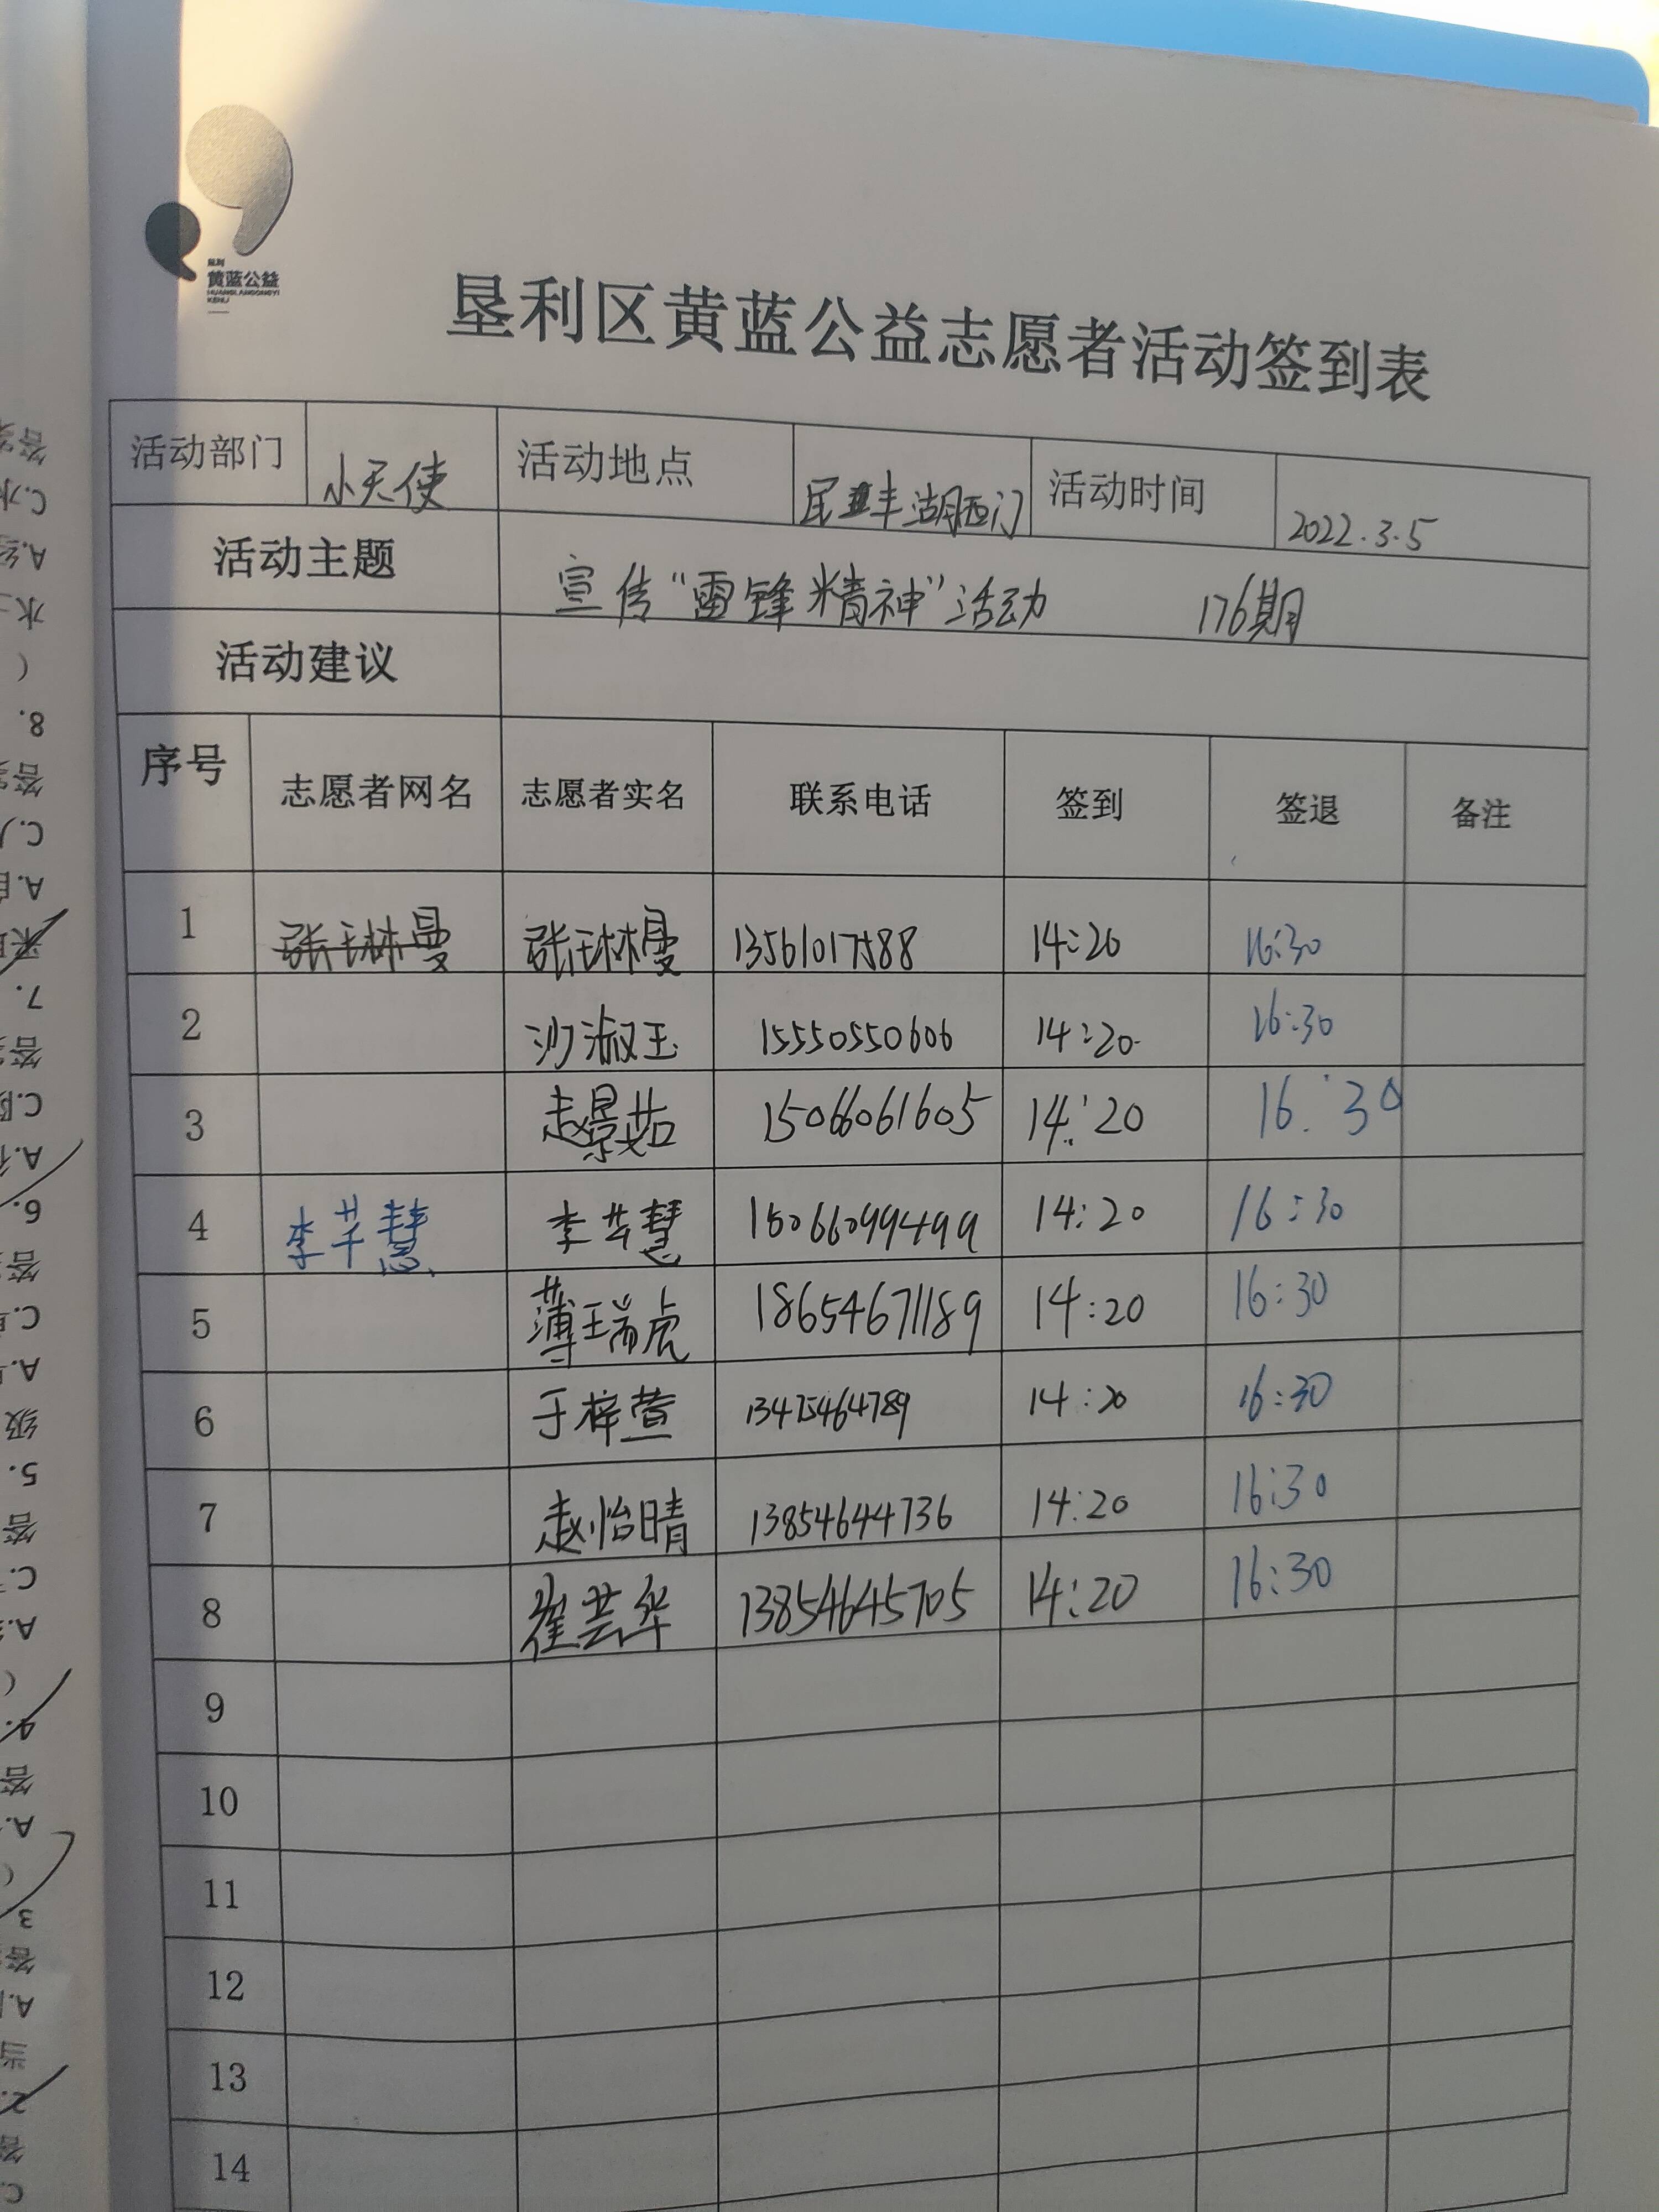 垦利
黄蓝公益
HUANGLANGONGYI
KENLI
垦利区黄蓝公益志愿者活动签到表
活动部门 小天使 活动地点 民丰湖西门 活动时间 2022.3.5
活动主题 宣传“雷锋精神”活动 176期
活动建议
序号 志愿者网名 志愿者实名 联系电话 签到 签退 备注
1 张琳曼 张琳曼 13561017588 14:20 16:30
2 沙淑玉 15550550606 14:20 16:30
3 赵景茹 15066061605 14:20 16:30
4 李芊慧 李芊慧 15066099499 14:20 16:30
5 薄瑞虎 18654671189 14:20 16:30
6 于梓萱 13475464789 14:20 16:30
7 赵怡晴 13854644736 14:20 16:30
8 崔芸华 13854645705 14:20 16:30
9
10
11
12
13
14